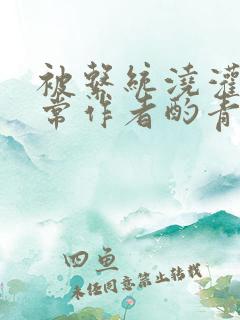 被系統澆灌
常作者酌青
四鱼
未经同意禁止转载